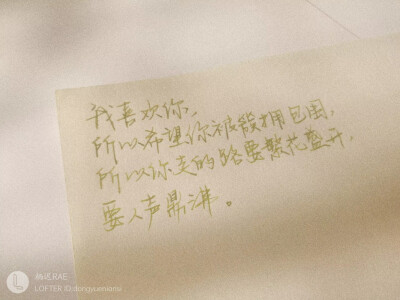 我喜欢你,
所以希望你被簇拥包围,
所以你走的路要繁花盛开,
要人声鼎沸。
RAE
LOFTER